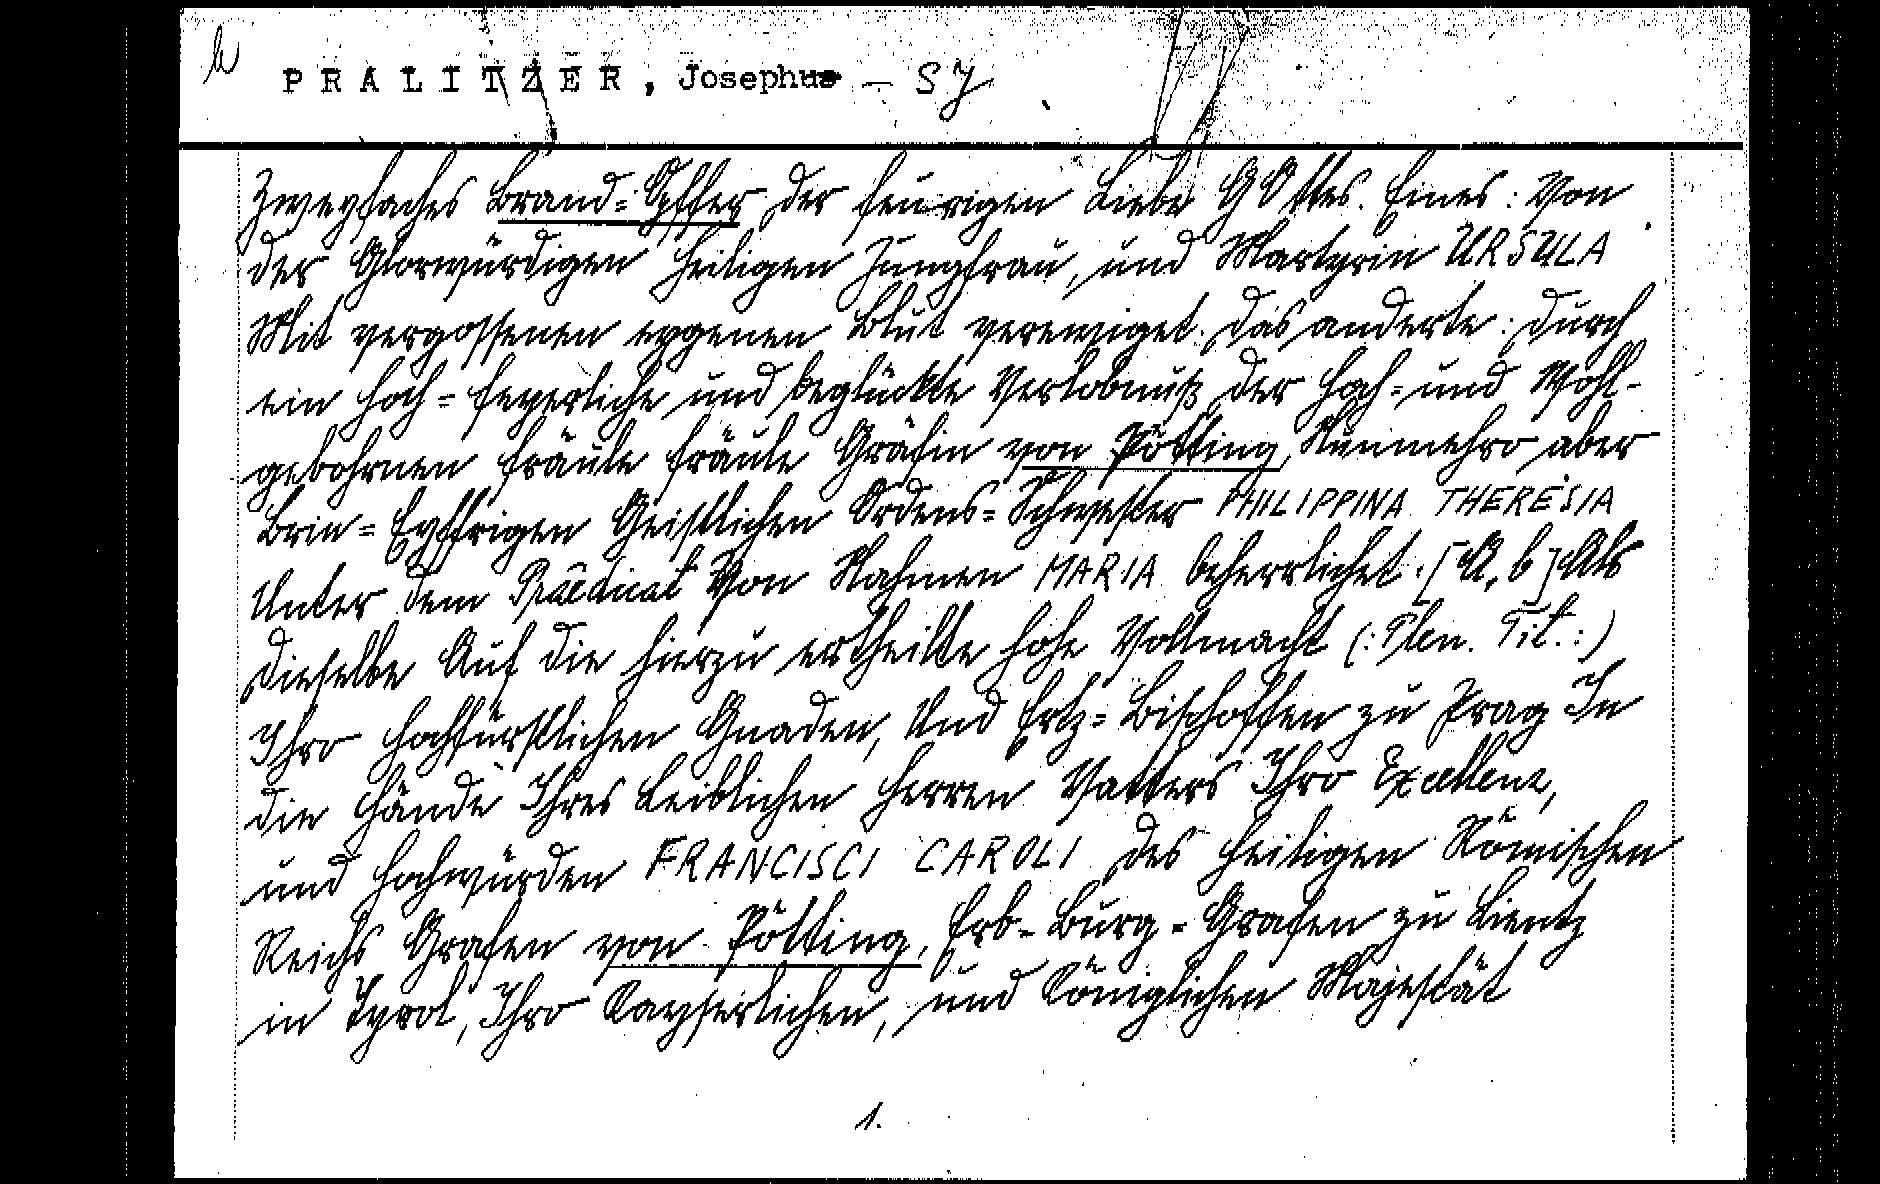 b
PRALITZER, Josephus – SJ
Zweyfaches Brand=Opffer der feurigen Liebe GOttes. Eines: Von
der Glorwürdigen Heiligen Jungfrau, und Martyrin URSULA
Mit vergossenen eygenen Blut verewiget. Das anderte: Durch
ein Hoch=feyerliche und beglückte Verlobnuß der Hoch=und Wohl-
gebohrnen Fräule Fräule Gräfin von Pötting, Nunmehro aber
Brin=Eyffrigen Geistlichen Ordens=Schwester PHILIPPINA THERESIA
Unter dem Praedicat Von Nahmen MARIA beherrlichet. [A, b] Als
dieselbe Auf die hierzu ertheilte hohe Vollmacht (: Plen. Tit. :)
Ihro Hochfürstlichen Gnaden, Und Ertz=Bischoffen zu Prag In
die Hände Ihres Leiblichen Herren Vatters Ihro Excellenz,
und Hochwürden FRANCISCI CAROLI des Heiligen Römischen
Reichs Grafen von Pötting, Erb-Burg-Grafen zu Lientz
in Tyrol, Ihro Kayserlichen, und Königlichen Majestät
1.